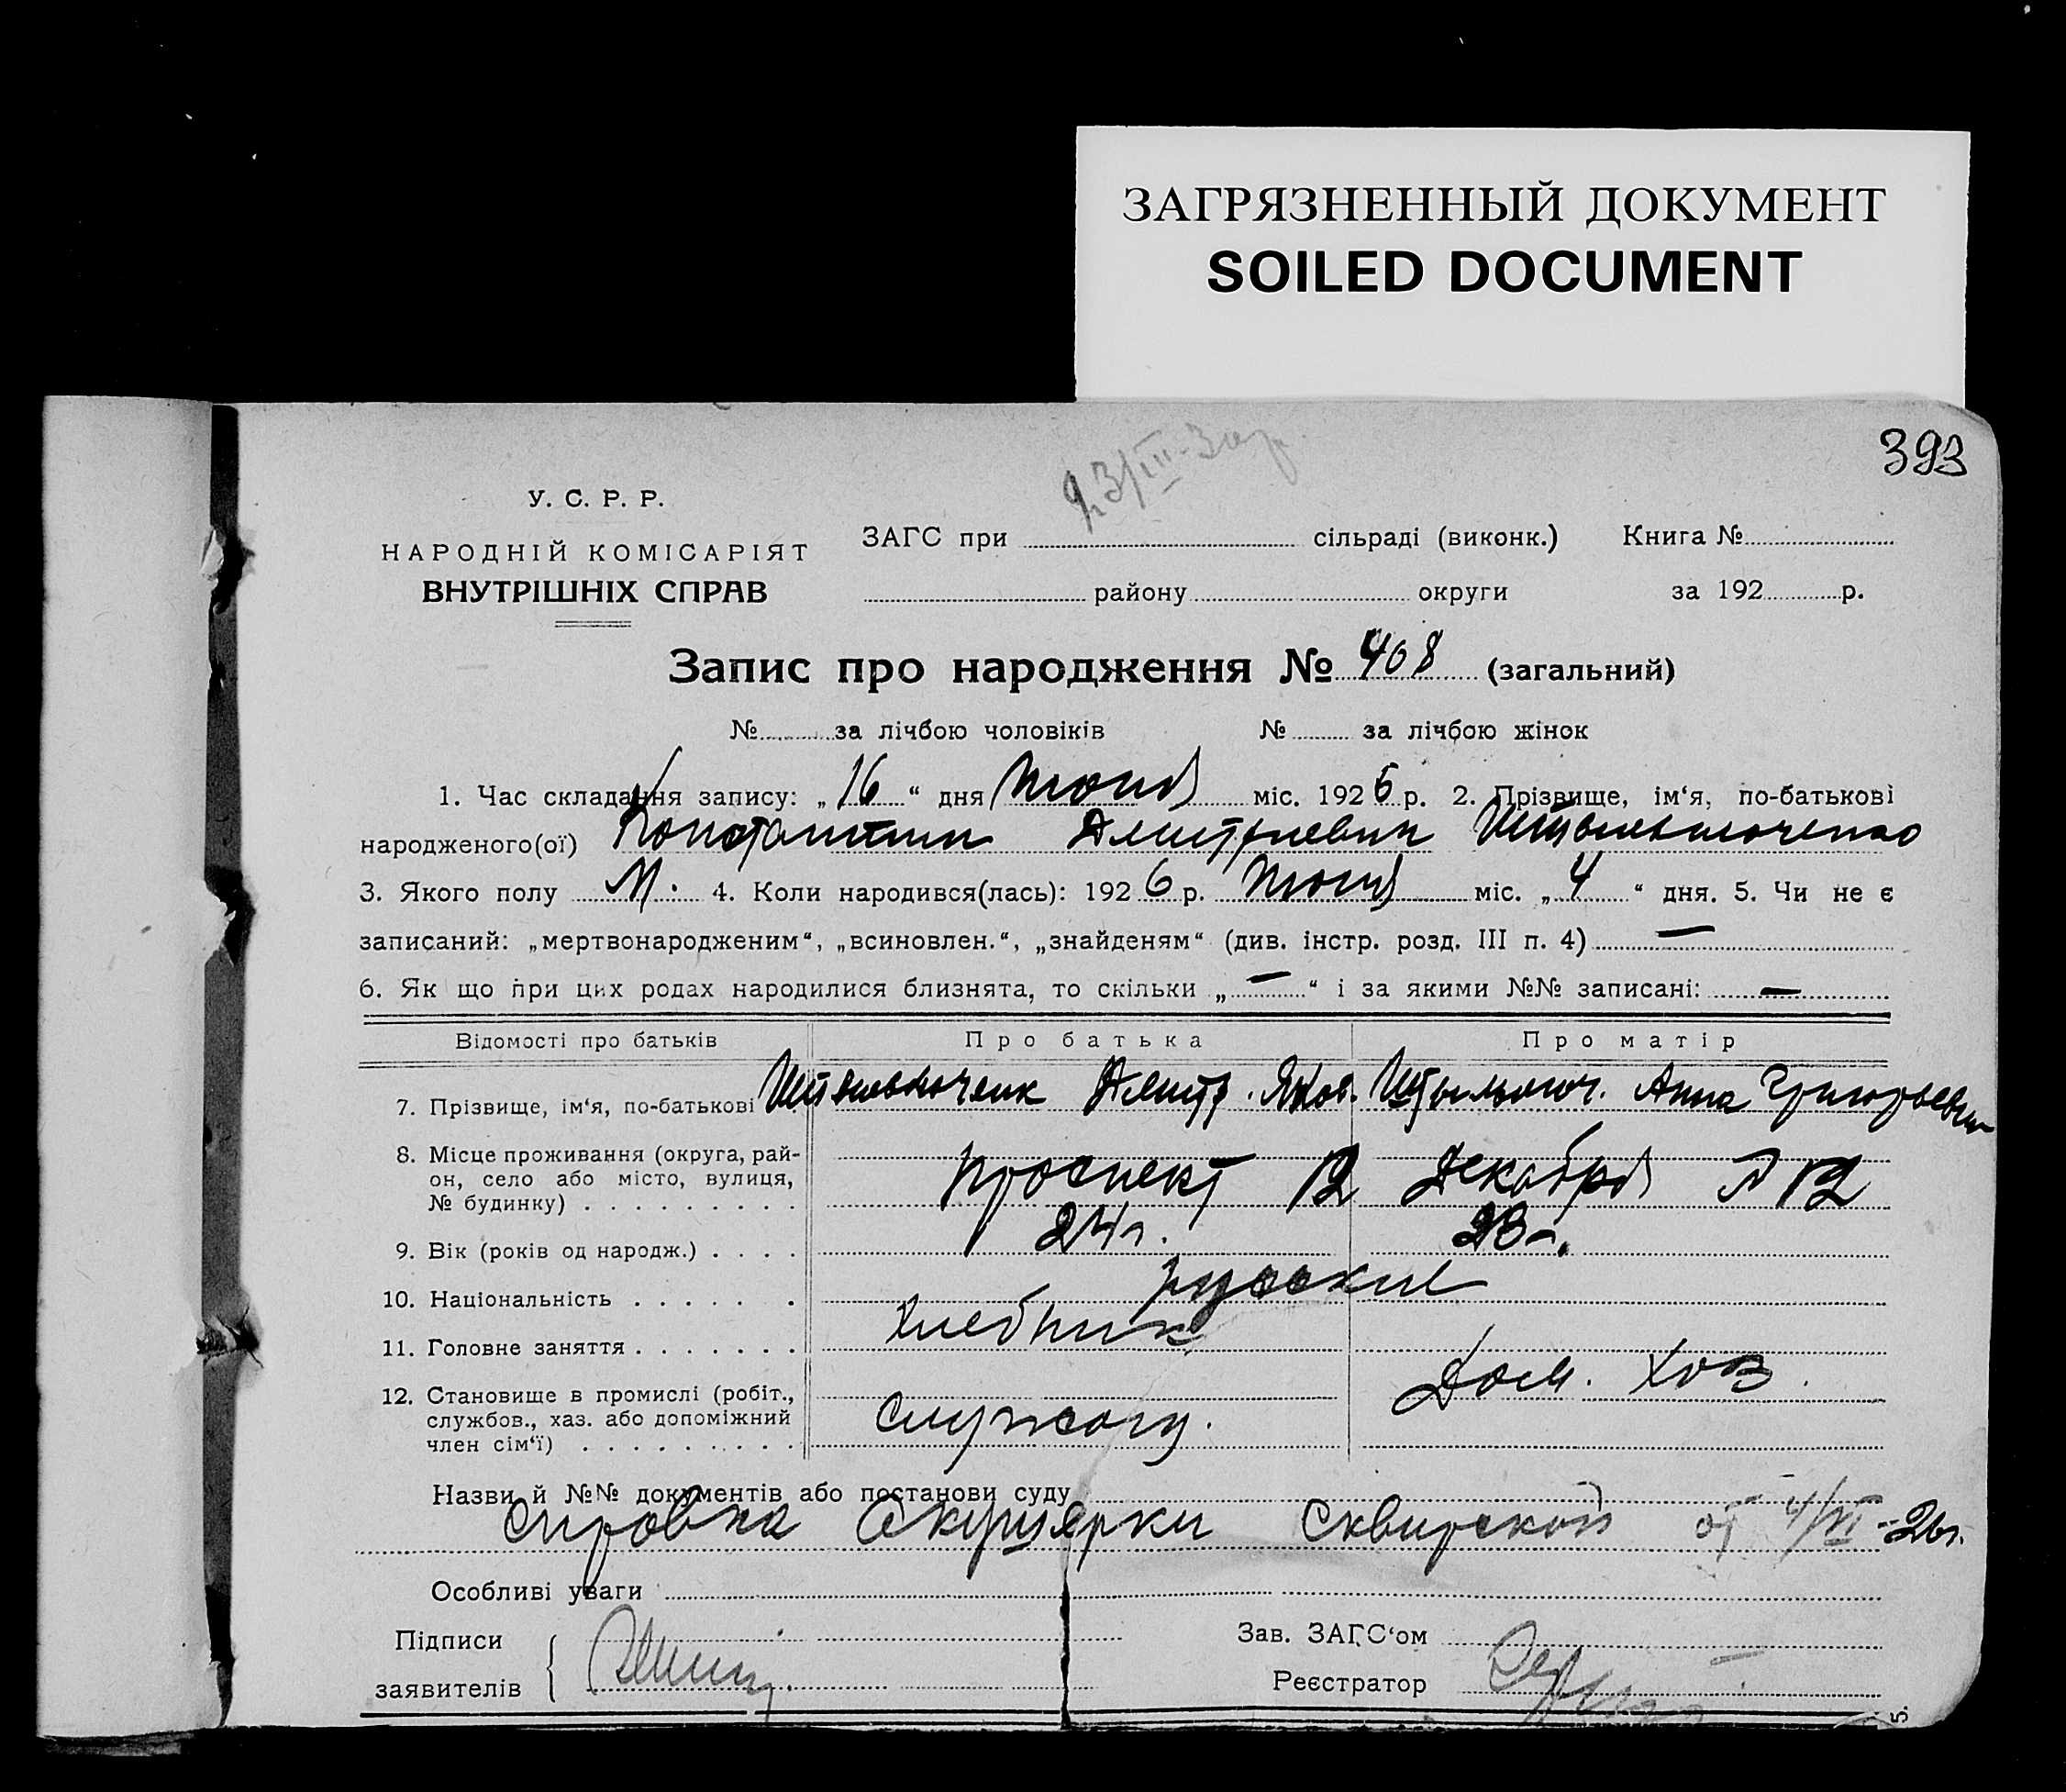 ЗАГРЯЗНЕННЫЙ ДОКУМЕНТ
SOILED DOCUMENT
393
23/III
У. С. Р. Р.
НАРОДНІЙ КОМІСАРІЯТ
ВНУТРІШНІХ СПРАВ
ЗАГС при сільраді (виконк.) Книга №
району округи за 192 р.
Запис про народження № 408 (загальний)
№ за лічбою чоловіків № за лічбою жінок
1. Час складання запису: „16“ дня Июня міс. 1926 р. 2. Прізвище, ім‘я, по-батькові
народженого(ої) Константин Дмитриевич
3. Якого полу М. 4. Коли народився(лась): 1926 р. Июня міс. „4“ дня. 5. Чи не є
записаний: „мертвонародженим“, „всиновлен.“, „знайденям“ (див. інстр. розд. III п. 4) —
6. Як що при цих родах народилися близнята, то скільки „—“ і за якими №№ записані: —
Відомості про батьків Про батька Про матір
7. Прізвище, ім‘я, по-батькові Дмитр. Яков. Анна Григорьевн
8. Місце проживання (округа, рай-
он, село або місто, вулиця,
№ будинку) проспект 12 Декабря № 12
9. Вік (років од народж.) 24 г. 23 г.
10. Національність русские
11. Головне заняття хлебник
Дом. хоз.
12. Становище в промислі (робіт.,
службов., хаз. або допоміжний
член сім‘ї) служащ.
Назви й №№ документів або постанови суду
справка Акушерки Сквирской от 4/VI-26г.
Особливі уваги
Підписи
заявителів
Зав. ЗАГС‘ом
Реєстратор
5.